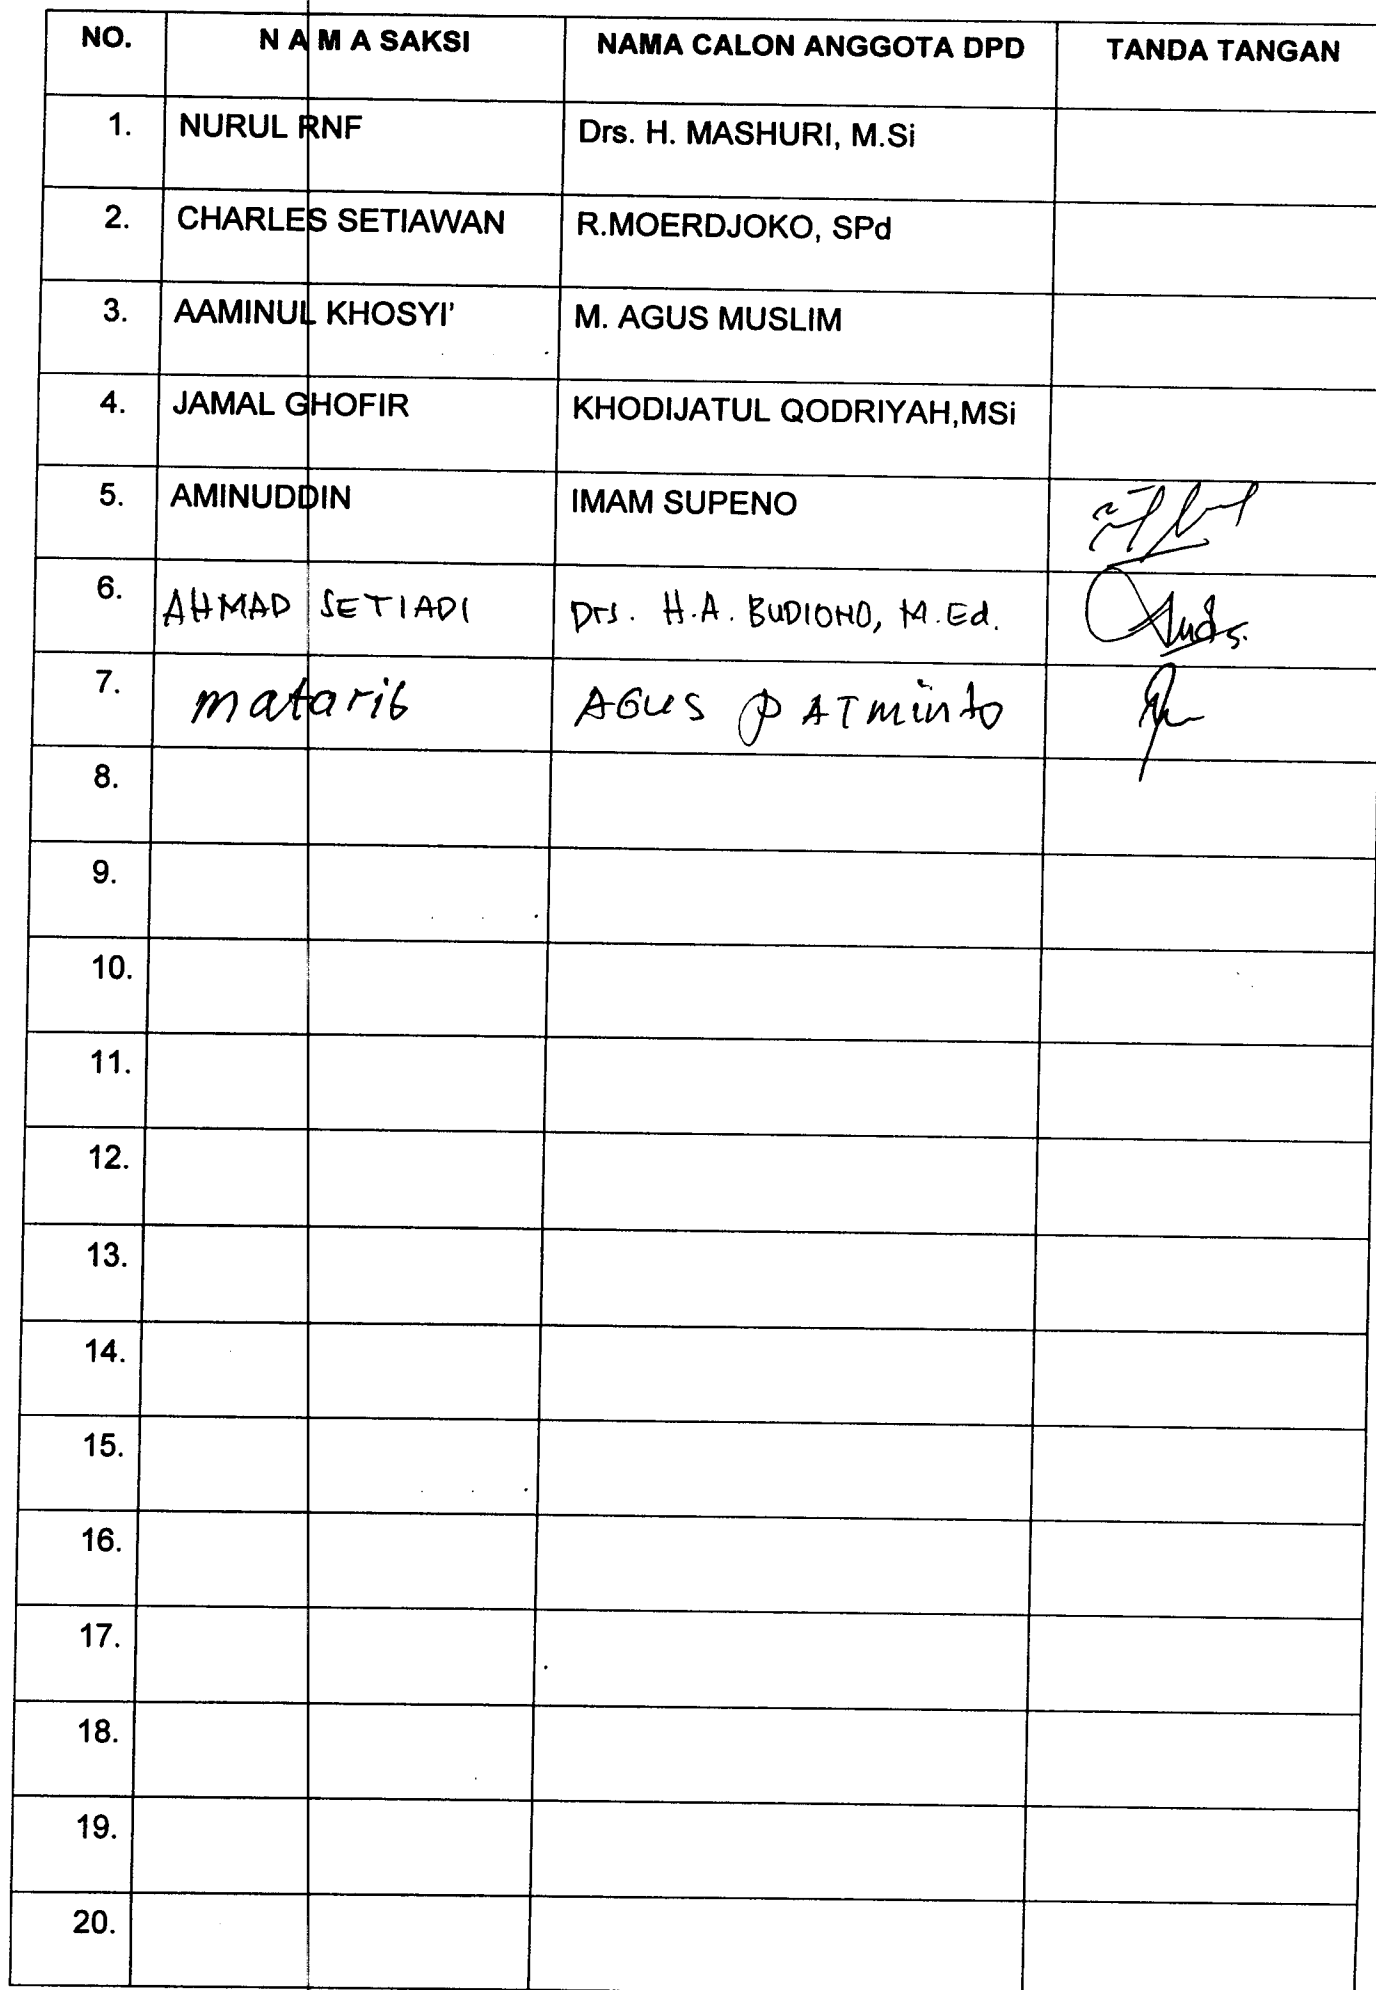 NO. N A M A SAKSI NAMA CALON ANGGOTA DPD TANDA TANGAN
1. NURUL RNF Drs. H. MASHURI, M.Si
2. CHARLES SETIAWAN R.MOERDJOKO, SPd
3. AAMINUL KHOSYI' M. AGUS MUSLIM
4. JAMAL GHOFIR KHODIJATUL QODRIYAH,MSi
5. AMINUDDIN IMAM SUPENO
6. AHMAD SETIADI Drs. H.A. BUDIONO, M.Ed.
7. matarib AGUS PATminto
8.
9.
10.
11.
12.
13.
14.
15.
16.
17.
18.
19.
20.